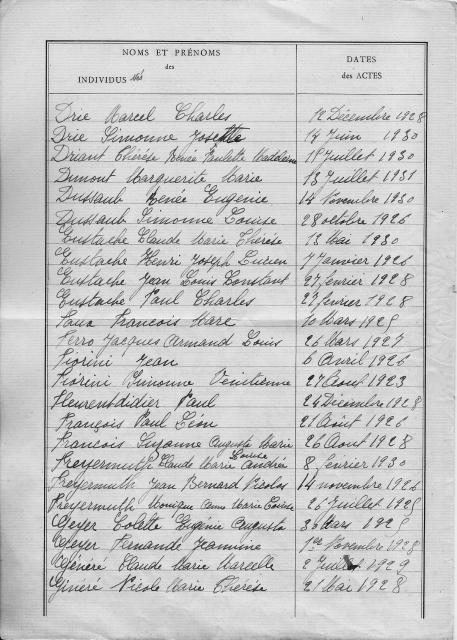 NOMS ET PRÉNOMS
des
INDIVIDUS Nés
DATES
des ACTES
Drie Marcel Charles 12 Décembre 1928
Drie Simonne Josette 14 Juin 1930
Driant Thérèse Renée Paulette Madeleine 18 Juillet 1930
Dumont Marguerite Marie 13 Juillet 1931
Dussaub Renée Eugénie 14 Novembre 1930
Dussaub Simonne Louise 28 octobre 1926
Eustache Claude Marie Thérèse 13 Mai 1930
Eustache Henri Joseph Lucien 7 Janvier 1926
Eustache Jean Louis Constant 27 février 1928
Eustache Paul Charles 22 février 1928
Francois Marc 10 Mars 1925
Ferro Jacques Armand Louis 26 Mars 1927
Fiorini Jean 6 Avril 1926
Fiorini Simonne Venitienne 27 Aout 1923
Fleurentdidier Paul 24 Décembre 1928
François Paul Léon 21 Août 1926
Francois Suzanne Augusta Marie 26 Aout 1928
Freyermuth Claude Marie Louise Andrée 8 février 1930
Freyermuth Jean Bernard Nicolas 14 novembre 1926
Freyermuth Monique Anne Marie Louise 26 Juillet 1925
Geyer Colette Eugénie Augusta 30 Mars 1925
Geyer Fernande Jeannine 1er Novembre 1928
Généré Claude Marie Marcelle 2 Juillet 1929
Généré Nicole Marie Thérèse 21 Mai 1928